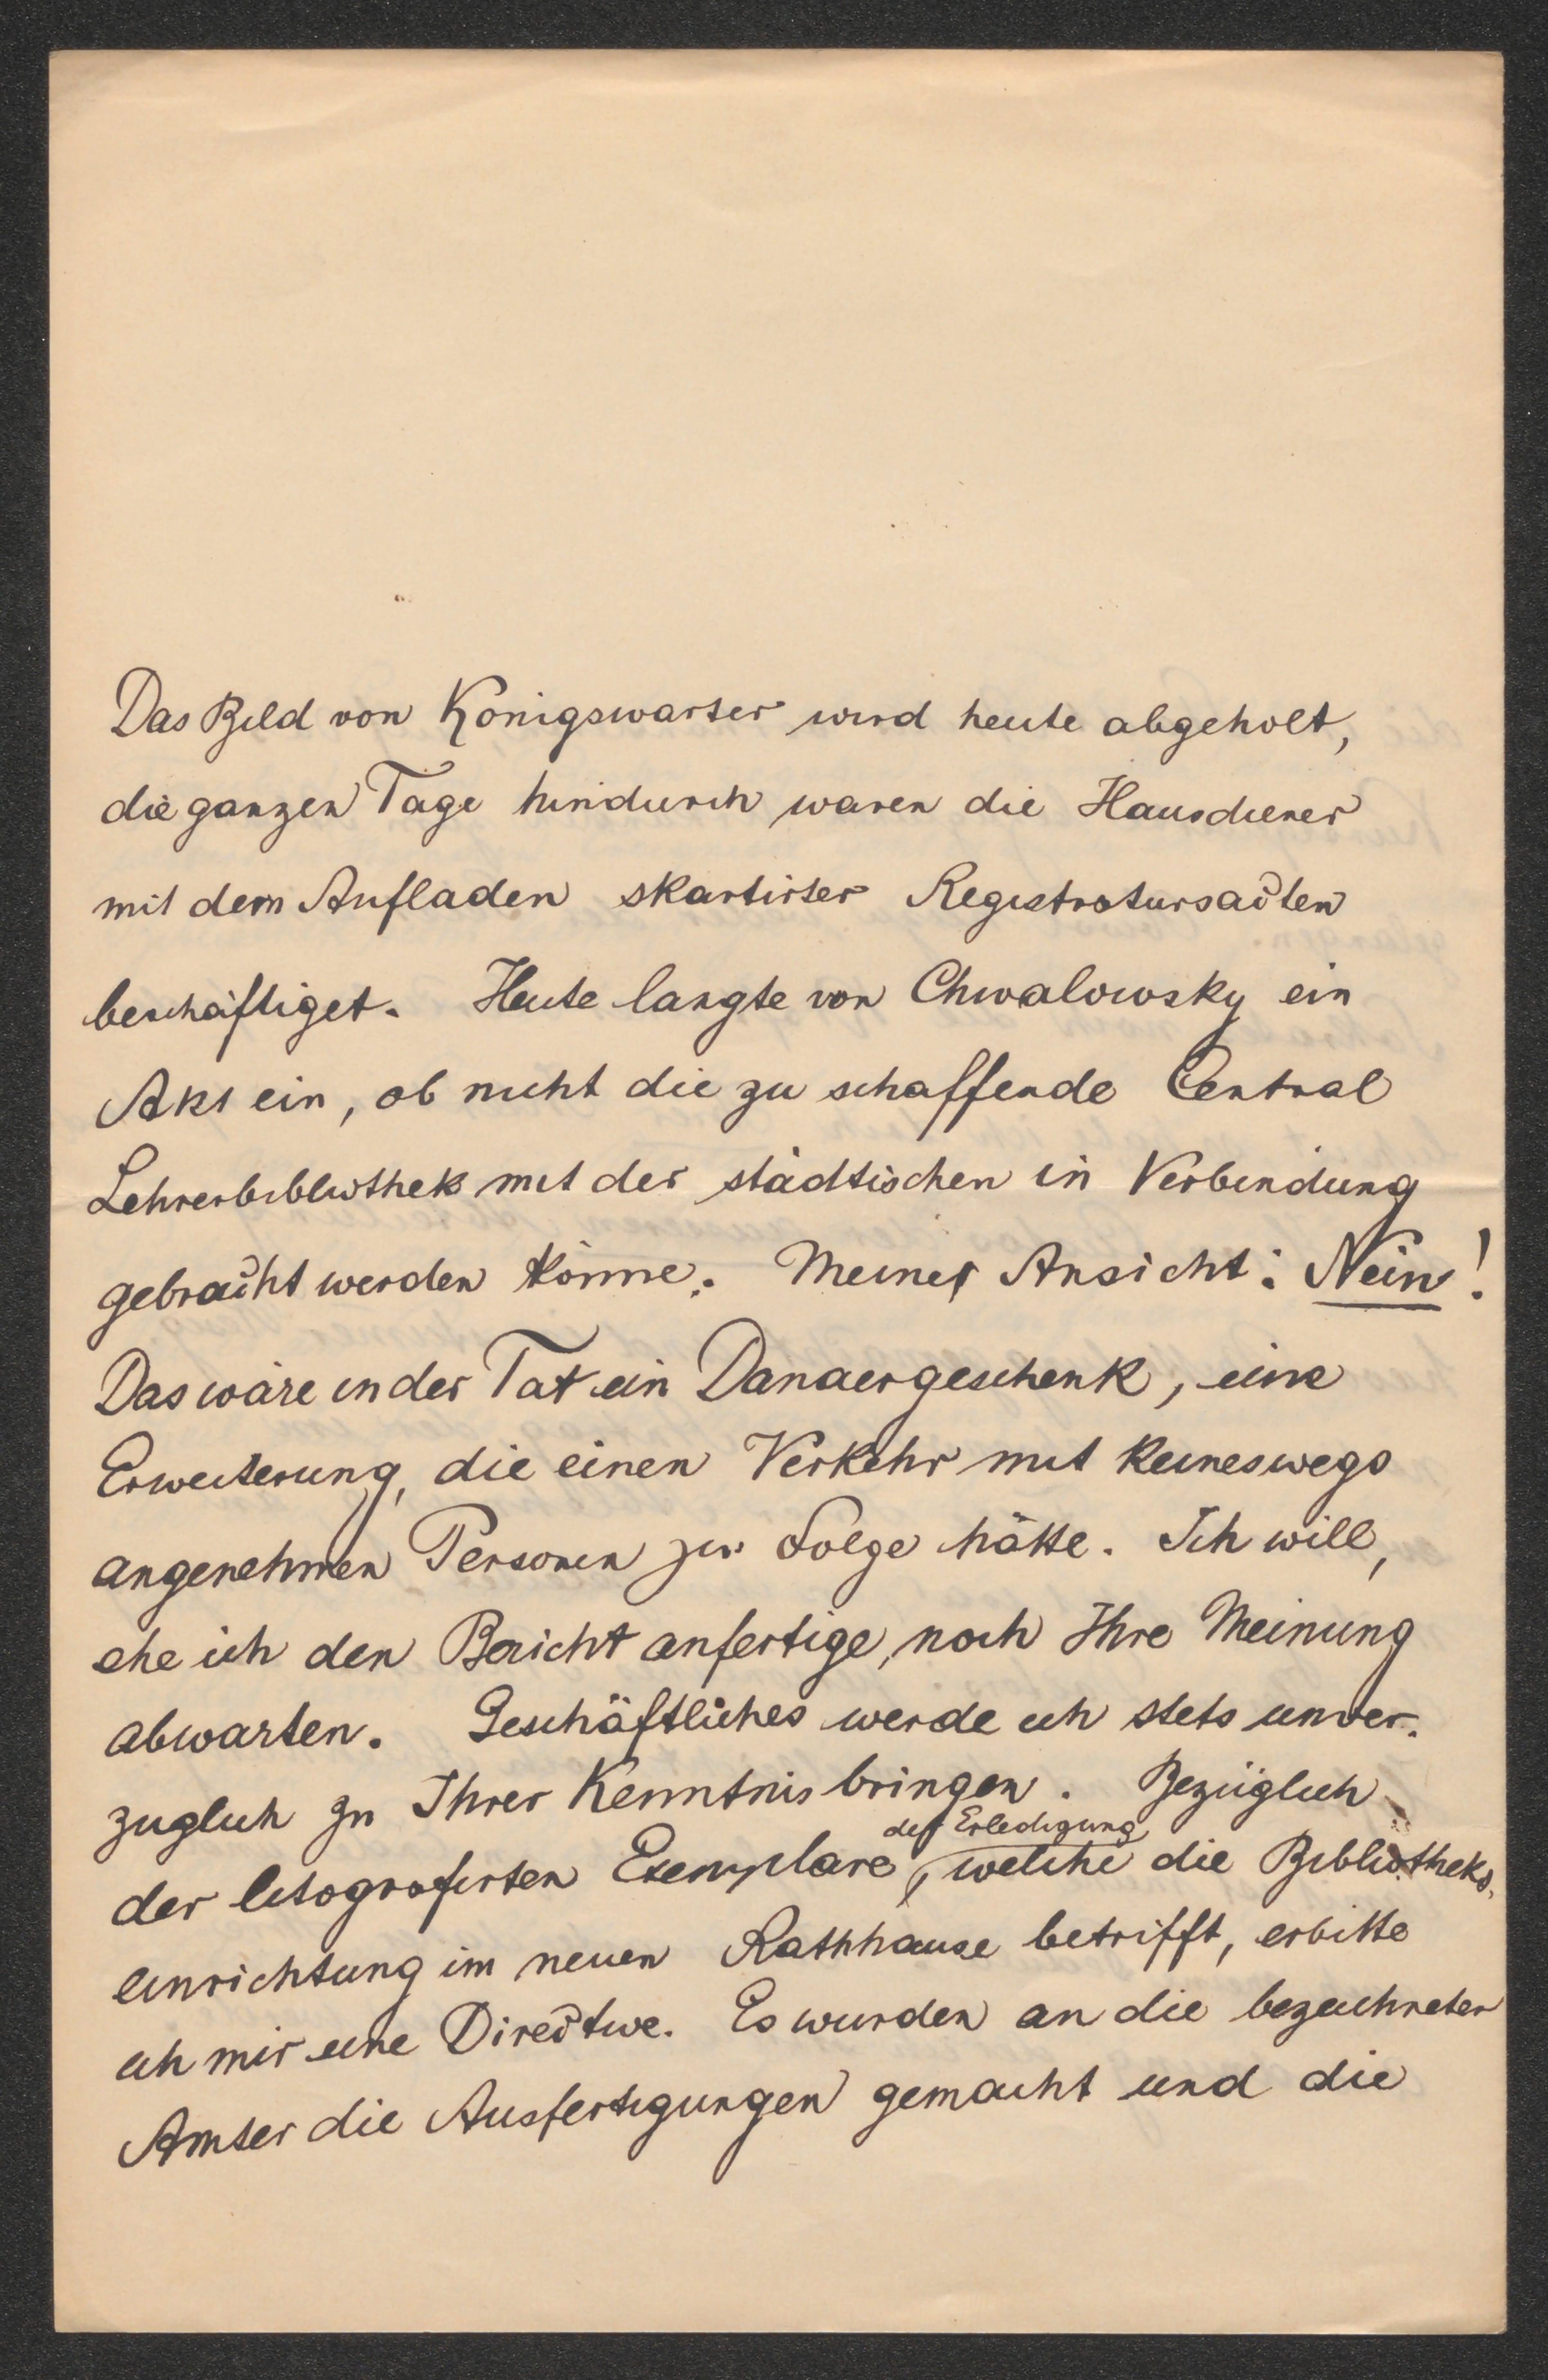 Das Bild von Königswarter wird heute abgeholt,
die ganzen Tage hindurch waren die Hausdiener
mit dem Aufladen skartirter Registratursacten
beschäftiget. Heute langte von Chwalowsky ein
Akt ein, ob nicht die zu schaffende Central
Lehrerbibliothek mit der städtischen in Verbindung
gebracht werden könne. Meiner Ansicht: Nein!
Das wäre in der Tat ein Danaergeschenk, eine
Erweiterung, die einen Verkehr mit keineswegs
angenehmen Personen zur Folge hätte. Ich will,
ehe ich den Bericht anfertige, noch Ihre Meinung
abwarten. Geschäftliches werde ich stets unver-
züglich zu Ihrer Kenntnis bringen. Bezüglich
der Erledigung
der litografirten Exemplare, welche die Bibliotheks-
einrichtung im neuen Rathhause betrifft, erbitte
ich mir eine Directive. Es wurden an die bezeichneten
Ämter die Ausfertigungen gemacht und die